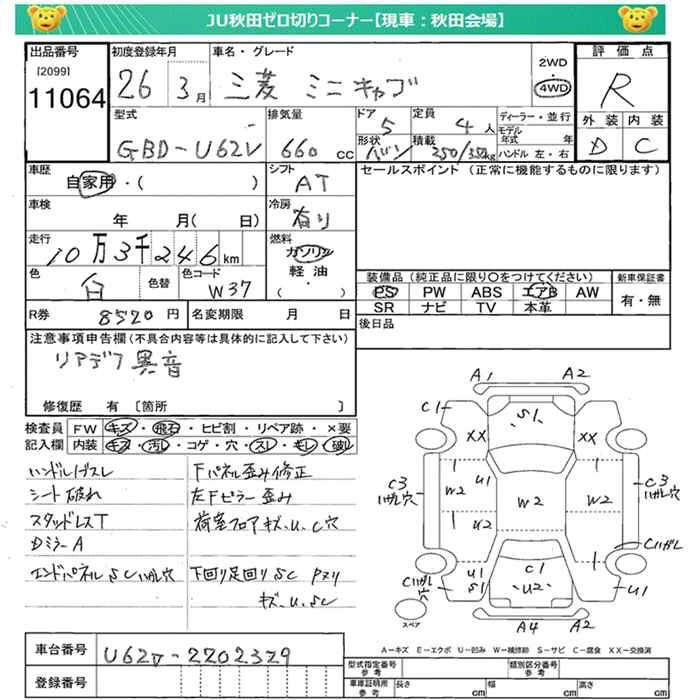 JU秋田ゼロ切りコーナー【現車：秋田会場】
出品番号 初度登録年月 車名・グレード 2WD 4WD 評価点
[2099]
11064 26 3月 三菱 ミニキャブ R
型式 排気量 ドア 定員 ディーラー・並行 外装 内装
GBD-U62V 660 CC 5 4人 モデル年式 年 D C
形状 バン 積載 250/350kg ハンドル 左・右
車歴 シフト セールスポイント（正常に機能するものに限ります）
自家用・（ ） AT
車検 冷房
年 月（ 日） 有り
走行 燃料
10万3千246km ガソリン
軽油
・
（ ）
色 色替 色コード
白 W37
装備品（純正品に限り○をつけてください） 新車保証書
PS PW ABS エアB AW 有・無
SR ナビ TV 本革
R券 8520円 名変期限 月 日 後日品
注意事項申告欄（不具合内容等は具体的に記入して下さい）
リアデフ異音
修復歴 有〔箇所 〕
検査員 FW キズ・飛石・ヒビ割・リペア跡・×要
記入欄 内装 キズ・汚れ・コゲ・穴・スレ・キレ・破レ
ハンドルハゲスレ Fパネル歪み修正
シート破れ 左Fピラー歪み
スタッドレスT 荷室フロアキズ、U、C穴
DミラーA
エンドパネルSCハガレ穴 下回り足回りSC Pヌリ
キズ、U、SC
A1 A2
C1 S1
XX XX
C3 ハガレ穴 U1 C3 ハガレ穴
W2 W2 W2
U2 Cハガレ穴
U1 C1 Cハガレ穴
S1 U2 U1
スペア A4 A2
A－キズ E－エクボ U－凹み W－補修跡 S－サビ C－腐食 XX－交換済
車台番号 U62V-2202329
登録番号
型式指定番号 参考 類別区分番号 参考
車庫証明用 参考 長さ cm 幅 cm 高さ cm